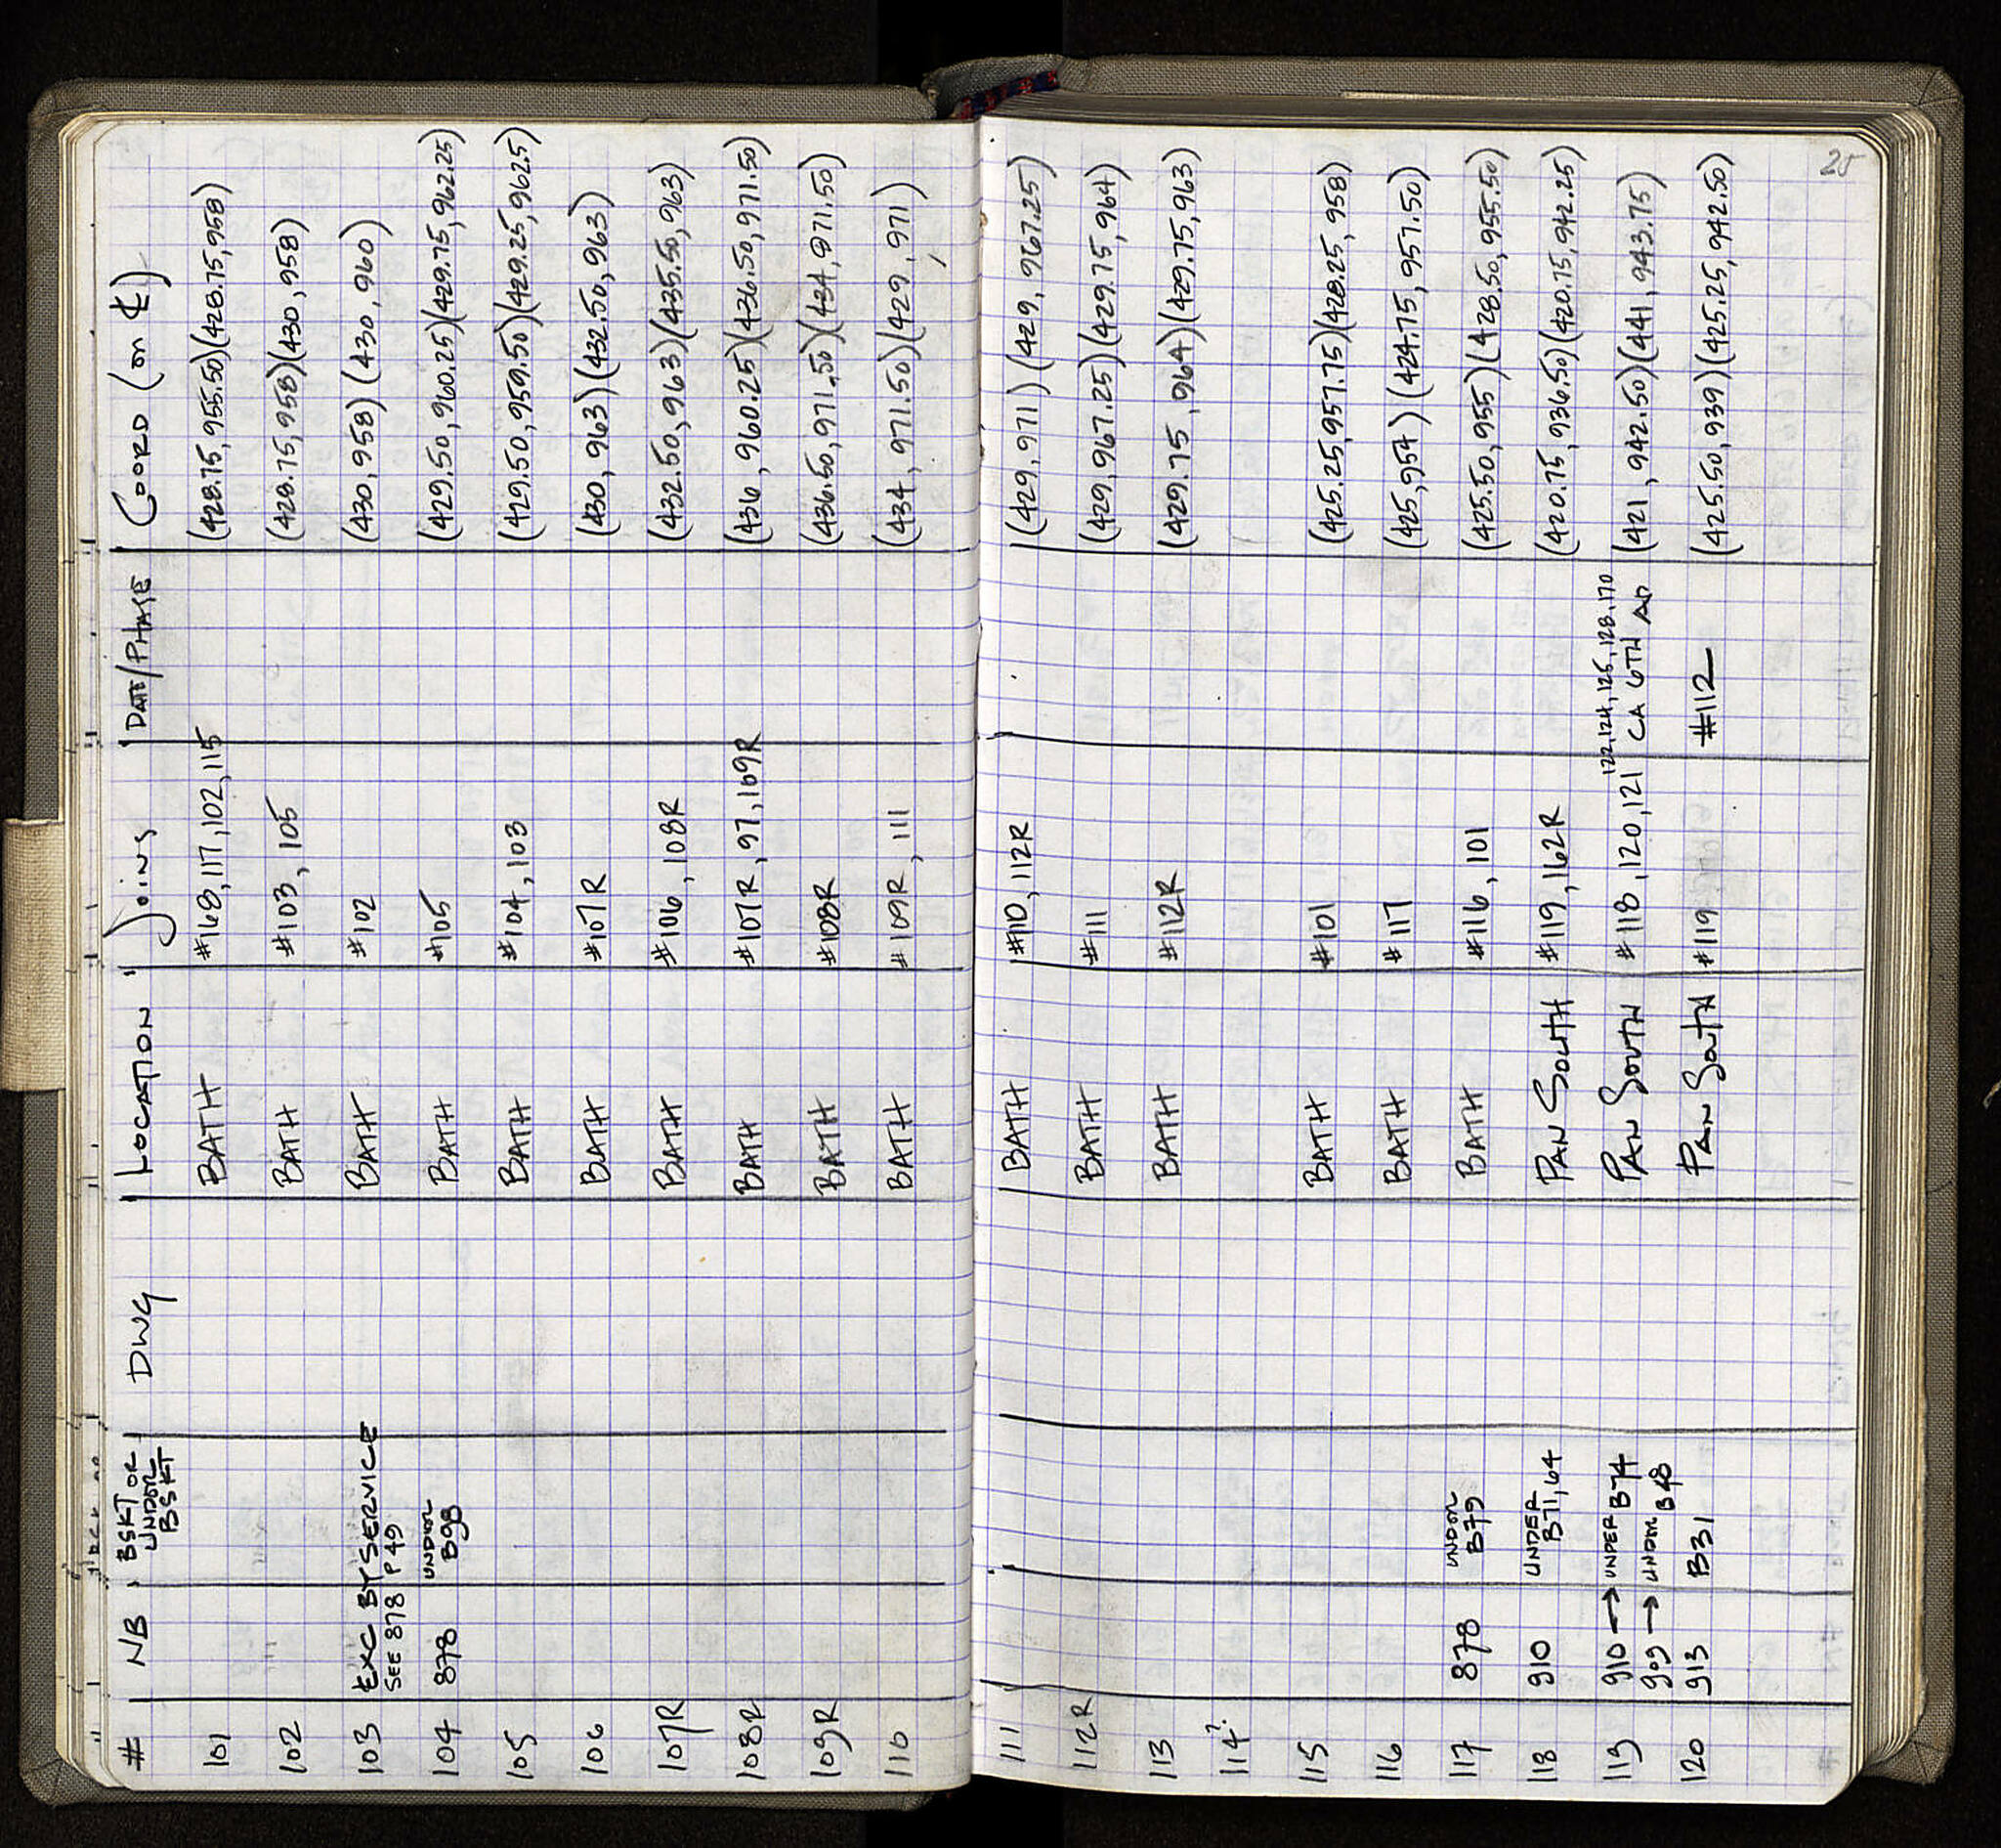 # NB BSKT OR UNDER BSKT DWG LOCATION JOINS DATE/PHASE COORD (on ℄)
101 BATH #168, 117, 102, 115 (428.75, 955.50)(428.75, 958)
102 BATH #103, 105 (428.75, 958)(430, 958)
103 EXC BY SERVICE SEE 878 P49 BATH #102 (430, 958)(430, 960)
104 878 UNDER B98 BATH #105 (429.50, 960.25)(429.75, 962.25)
105 BATH #104, 103 (429.50, 959.50)(429.25, 962.5)
106 BATH #107R (430, 963)(432.50, 963)
107R BATH #106, 108R (432.50, 963)(435.50, 963)
108R BATH #107R, 97, 169R (436, 960.25)(436.50, 971.50)
109R BATH #108R (436.50, 971.50)(434, 971.50)
110 BATH #109R, 111 (434, 971.50)(429, 971)
25
111 BATH #110, 112R (429, 971)(429, 967.25)
112R BATH #111 (429, 967.25)(429.75, 964)
113 BATH #112R (429.75, 964)(429.75, 963)
114?
115 BATH #101 (425.25, 957.75)(428.25, 958)
116 BATH #117 (425, 954)(424.75, 957.50)
117 878 UNDER B79 BATH #116, 101 (425.50, 955)(428.50, 955.50)
118 910 UNDER B71, 64 PAN SOUTH #119, 162R (420.75, 936.50)(420.75, 942.25)
122, 124, 125, 128, 170
119 910 → UNDER B74 PAN SOUTH #118, 120, 121 CA 6TH AD (421, 942.50)(441, 943.75)
909 → UNDER B48
120 913 B31 PAN SOUTH #119 #112 (425.50, 939)(425.25, 942.50)